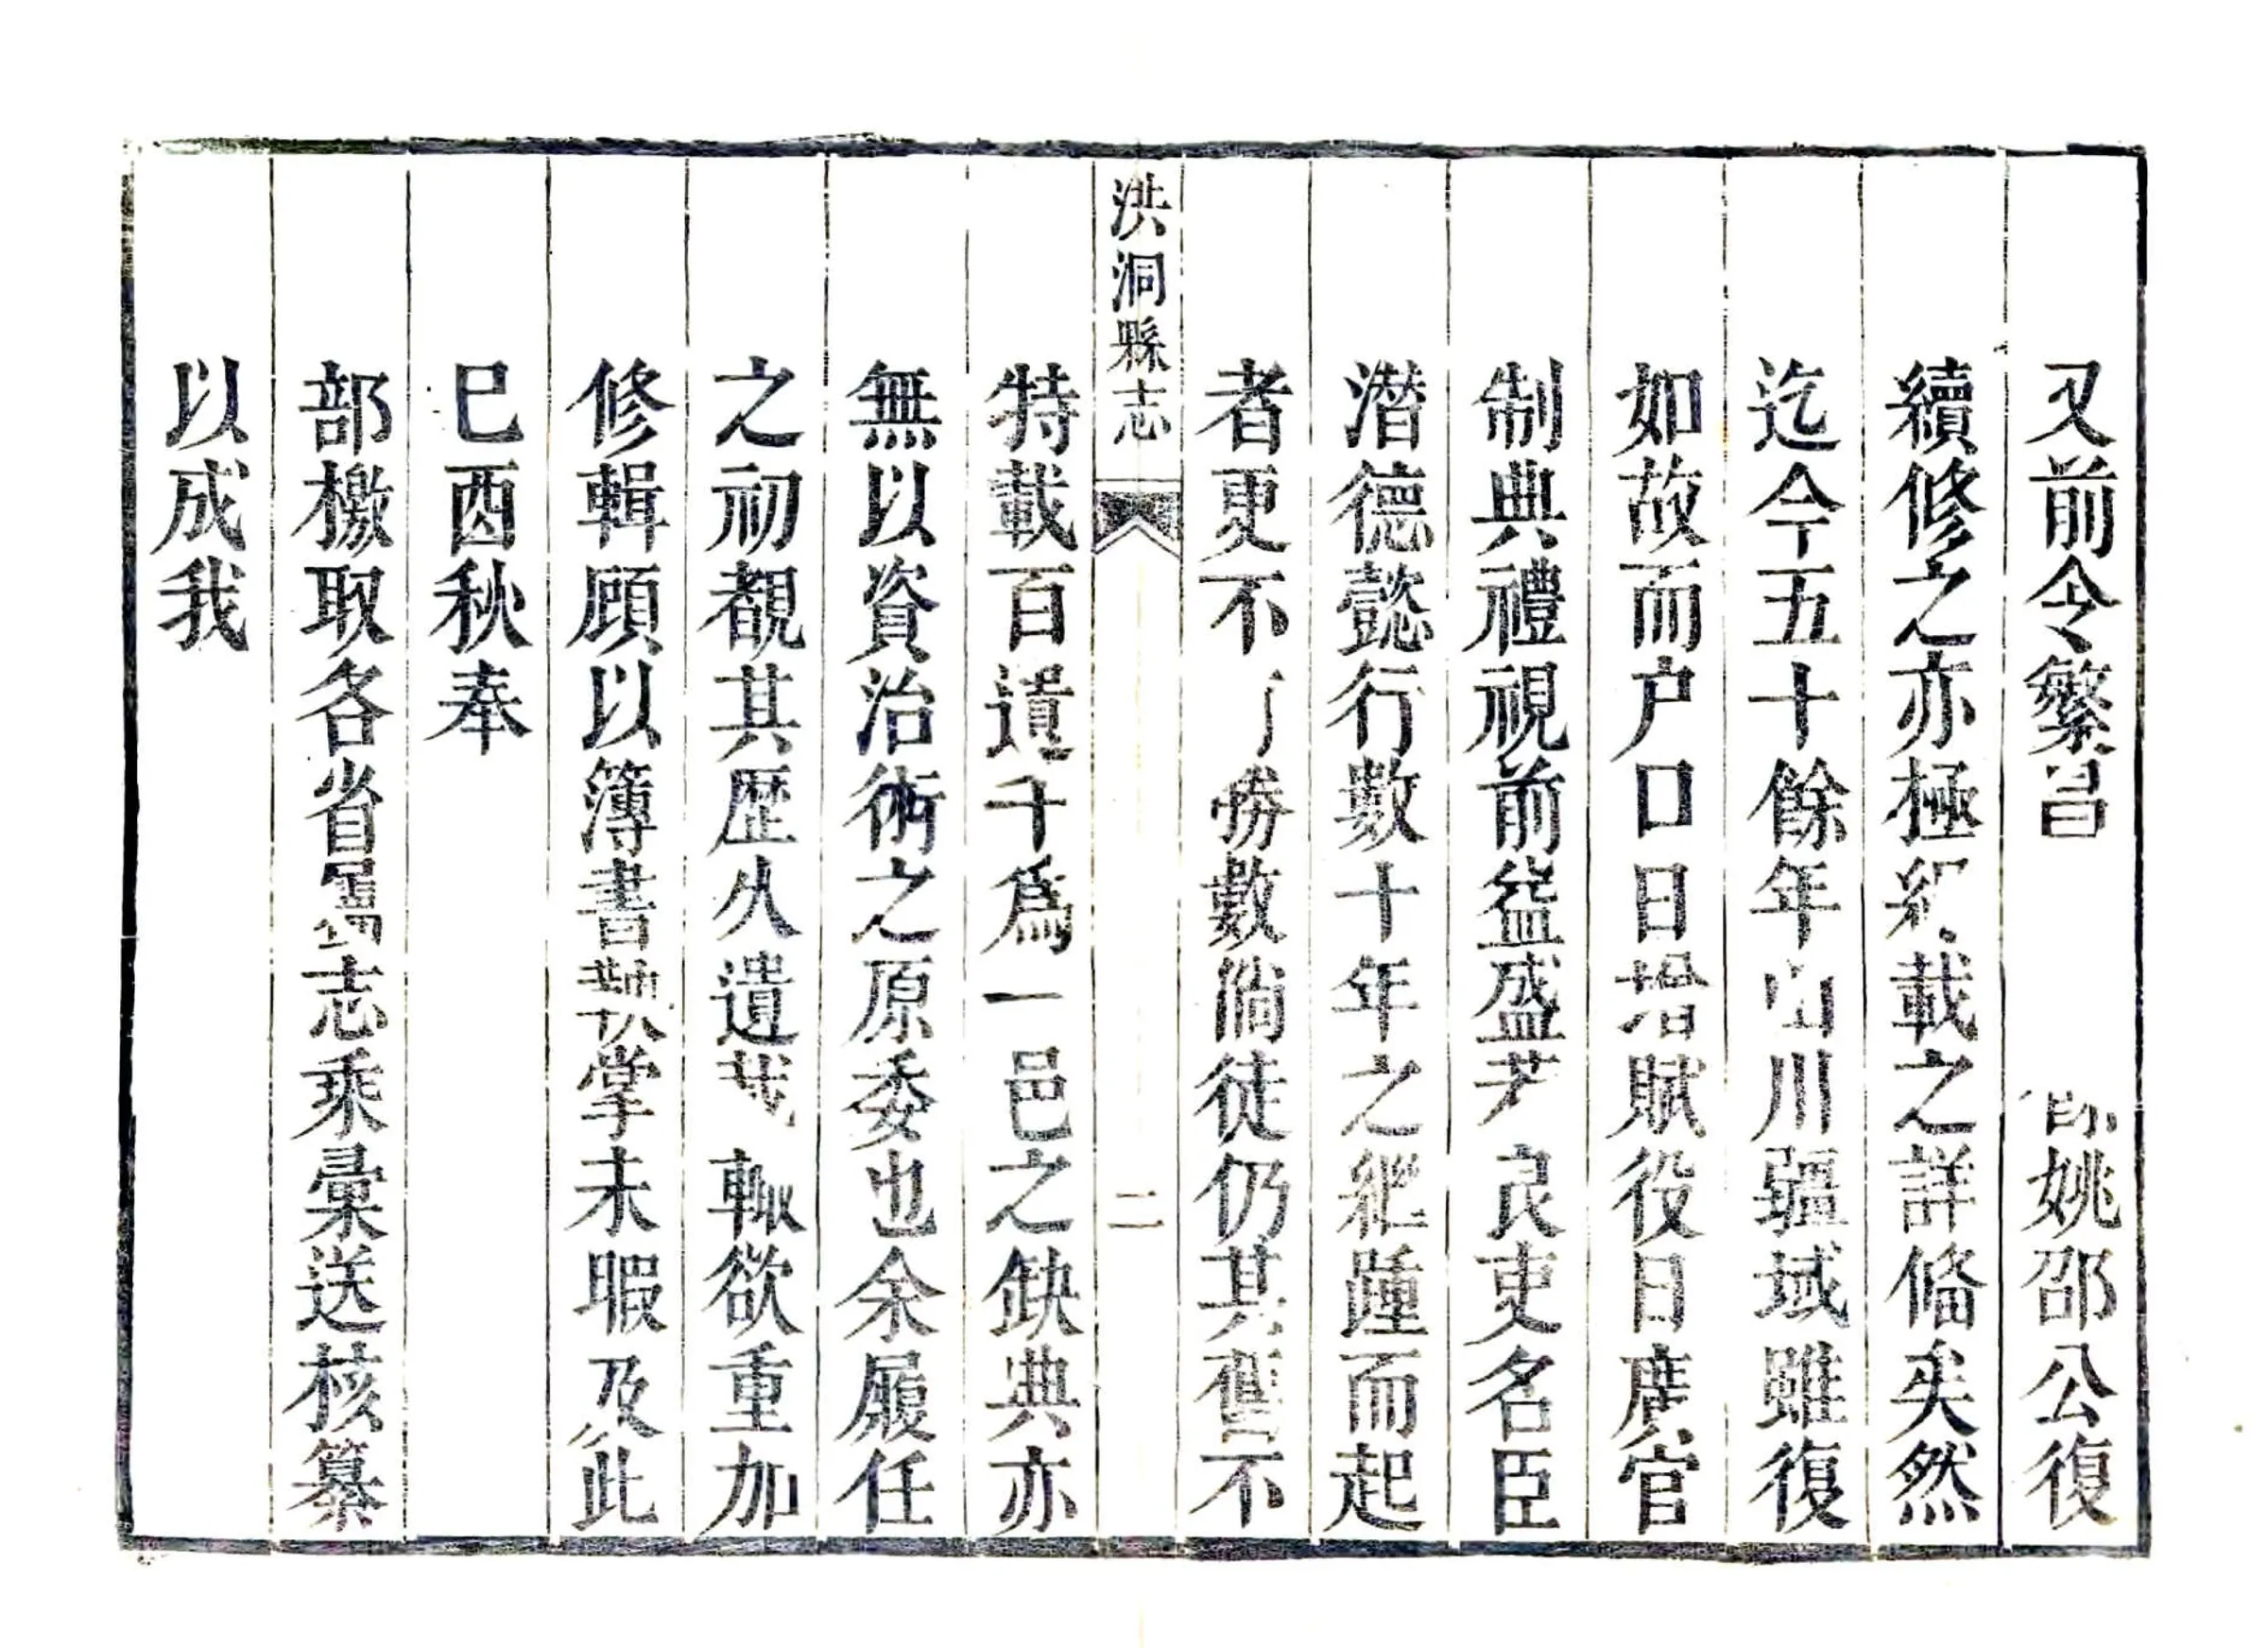 又前令繁昌姚邵公復
續修之亦極紀載之詳偹矣然
迄今五十餘年山川疆域雖復
如故而户口日增賦役日廣官
制典禮視前益盛才良吏名臣
潜德懿行數十年之繼踵而起
者更不勝數倘徒仍其舊不
洪洞縣志
二
特載百遺千爲一邑之缺典亦
無以資治術之原委也余履任
之初覩其歷久遺輒欲重加
修輯顧以簿書鞅掌未暇及此
巳酉秋奉
部檄取各省志乘彙送核纂
以成我